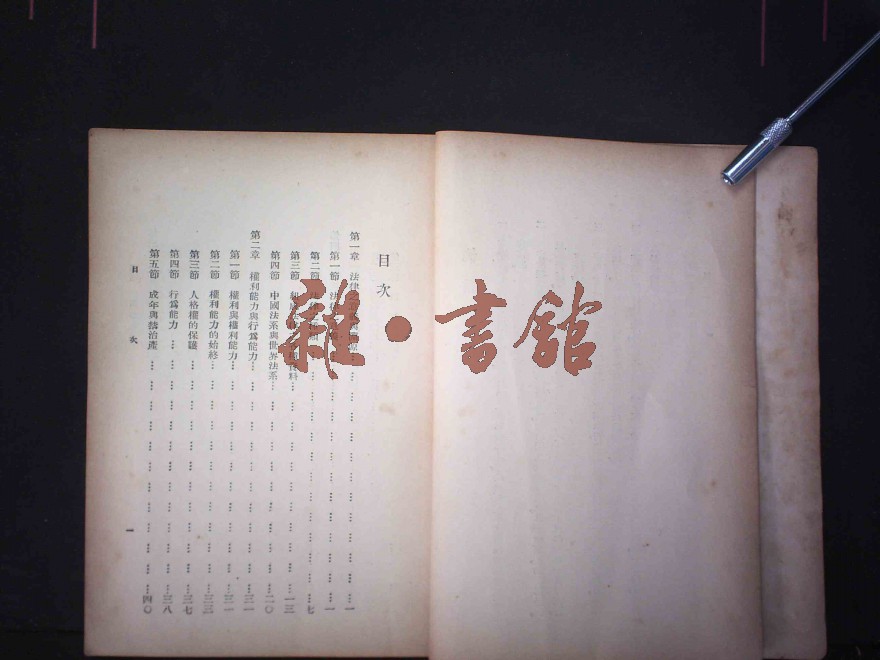 目次
第一章 法律之
第一節 法律
第二節 法律
第三節
第四節 中國法系與世界法系……二〇
第二章 權利能力與行爲能力……三一
第一節 權利與權利能力……三一
第二節 權利能力的始終……三三
第三節 人格權的保護……三七
第四節 行爲能力……三八
第五節 成年與禁治產……四〇
目 次
一
雜•書館